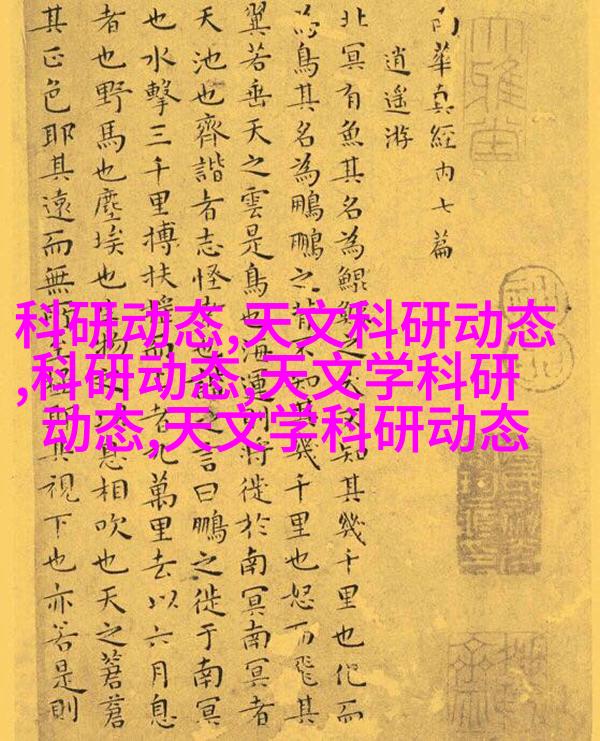 大雅堂
南華真經内七篇
逍遥游
北冥有魚其名為鯤鯤之大不知其幾千里也化而
為鳥其名為鵬鵬之背不知其幾千里也怒而飛其
翼若垂天之雲是鳥也海運則將徙於南冥南冥者
天池也齊諧者志怪者也諧之言曰鵬之徙于南冥
也水擊三千里摶扶摇而上者九萬里去以六月息
者也野馬也塵埃也生物之以息相吹也天之蒼蒼
其正色耶其遠而無所至極耶其視下也亦若是則
科研动态,天文科研动态
,科研动态,天文学科研
动态,天文学科研动态